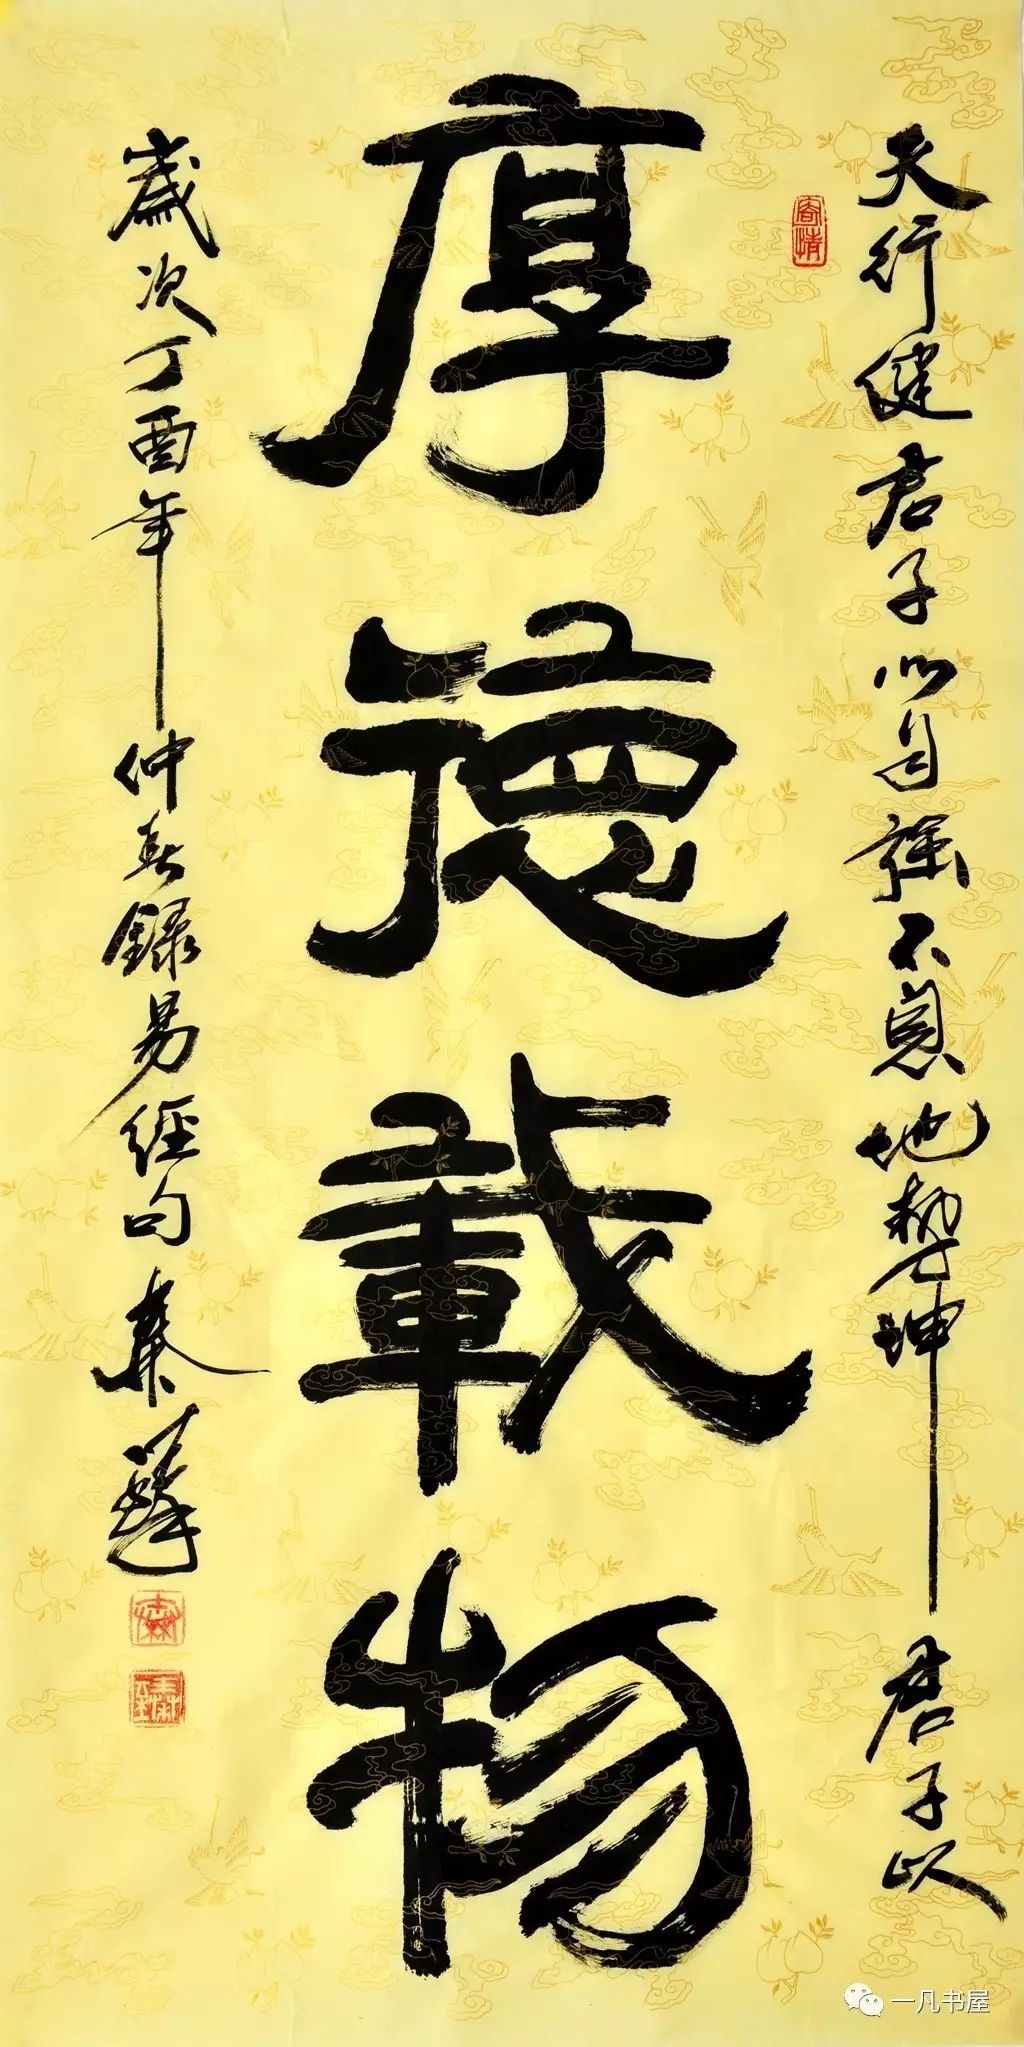 天行健君子以自強不息地勢坤君子以
厚德載物
歲次丁酉年仲春錄易經句秦
一凡书屋